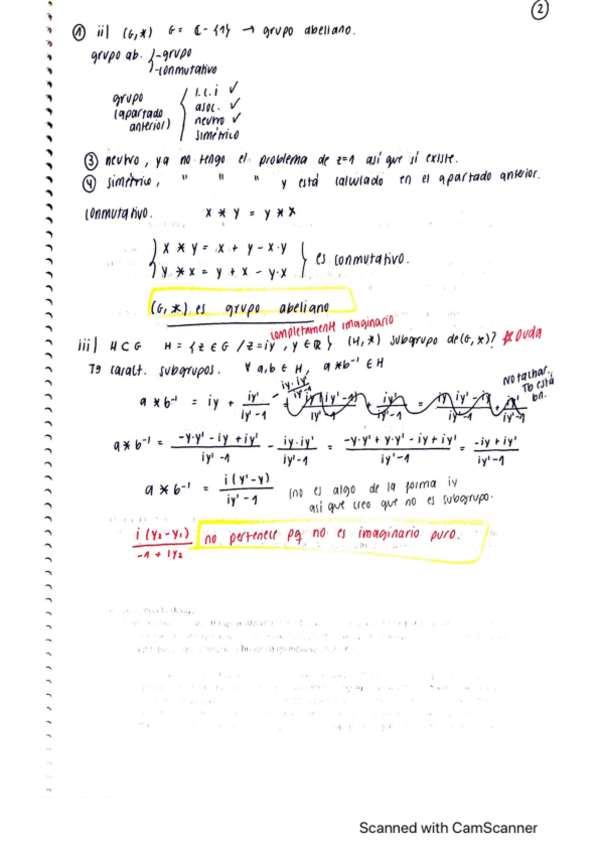 2
① ii| (G,*) G = ℂ-{1} → grupo abeliano.
grupo ab. { -grupo
-conmutativo
grupo (apartado anterior) { l.c.i ✓
asoc. ✓
neutro ✓
simétrico
③ neutro, ya no tengo el problema de z=1 así que sí existe.
④ simétrico, " " " y está calculado en el apartado anterior.
conmutativo. x * y = y * x
{ x * y = x + y - x·y
y * x = y + x - y·x } es conmutativo.
(G,*) es grupo abeliano
completamente imaginario
iii| H ⊂ G H = {z ∈ G / z = iy, y ∈ ℝ} (H,*) subgrupo de (G,*)? * Duda
Tª caract. subgrupos. ∀ a,b ∈ H, a * b⁻¹ ∈ H
No tachar. Tb está bn.
a * b⁻¹ = iy + iy'/(iy'-1) - iy·iy'/(iy'-1) =
a * b⁻¹ = (-y·y' - iy + iy')/(iy'-1) - iy·iy'/(iy'-1) = (-y·y' + y·y' - iy + iy')/(iy'-1) = (-iy + iy')/(iy'-1)
a * b⁻¹ = i(y'-y)/(iy'-1) (no es algo de la forma iy
así que creo que no es subgrupo.
i(y₂-y₁)/(-1+iy₂) no pertenece pq no es imaginario puro.
Scanned with CamScanner